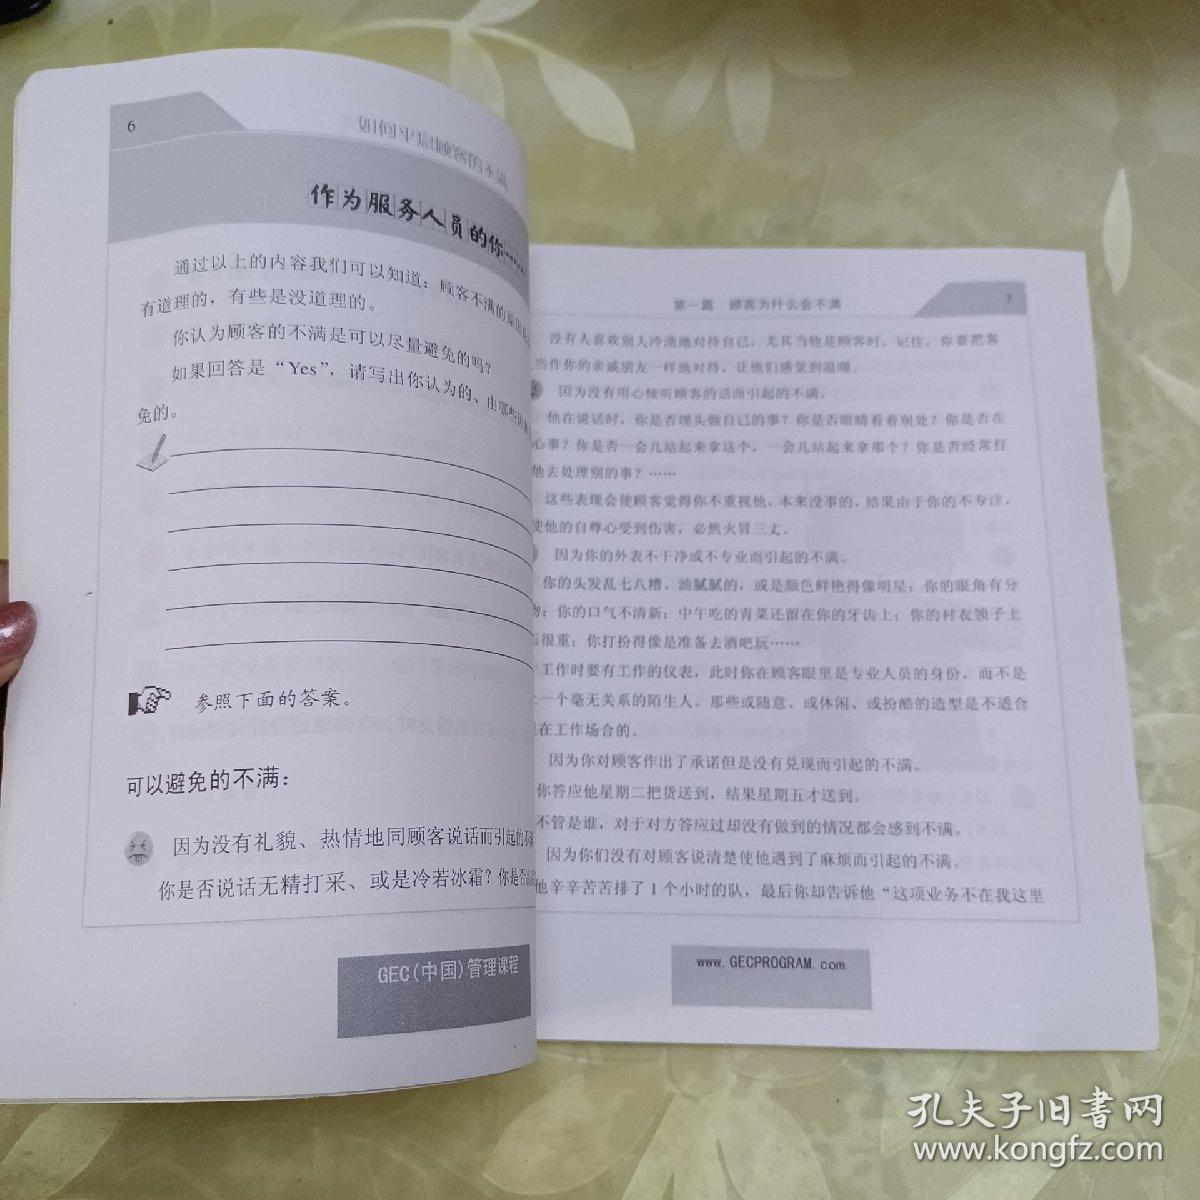 6
作为服务人员的你……
通过以上的内容我们可以知道：顾客不满的原因
有道理的，有些是没道理的。
你认为顾客的不满是可以尽量避免的吗？
如果回答是“Yes”，请写出你认为的、由哪些
免的。
参照下面的答案。
可以避免的不满：
因为没有礼貌、热情地同顾客说话而引起的不
你是否说话无精打采、或是冷若冰霜？你是否
GEC(中国)管理课程
第一篇 顾客为什么会不满
7
没有人喜欢别人冷漠地对待自己，尤其当他是顾客时。记住，你要把客
当作你的亲戚朋友一样地对待，让他们感觉到温暖。
因为没有用心倾听顾客的话而引起的不满。
他在说话时，你是否埋头做自己的事？你是否眼睛看着别处？你是否在
心事？你是否一会儿站起来拿这个，一会儿站起来拿那个？你是否经常打
他去处理别的事？……
这些表现会使顾客觉得你不重视他，本来没事的，结果由于你的不专注，
使他的自尊心受到伤害，必然火冒三丈。
因为你的外表不干净或不专业而引起的不满。
你的头发乱七八糟、油腻腻的，或是颜色鲜艳得像明星；你的眼角有分
物；你的口气不清新；中午吃的青菜还留在你的牙齿上；你的衬衣领子上
很重；你打扮得像是准备去酒吧玩……
工作时要有工作的仪表，此时你在顾客眼里是专业人员的身份，而不是
一个毫无关系的陌生人。那些或随意、或休闲、或扮酷的造型是不适合
在工作场合的。
因为你对顾客作出了承诺但是没有兑现而引起的不满。
你答应他星期二把货送到，结果星期五才送到。
不管是谁，对于对方答应过却没有做到的情况都会感到不满。
因为你们没有对顾客说清楚使他遇到了麻烦而引起的不满。
他辛辛苦苦排了1个小时的队，最后你却告诉他“这项业务不在我这里
www.GECPROGRAM.com
孔夫子旧书网
www.kongfz.com